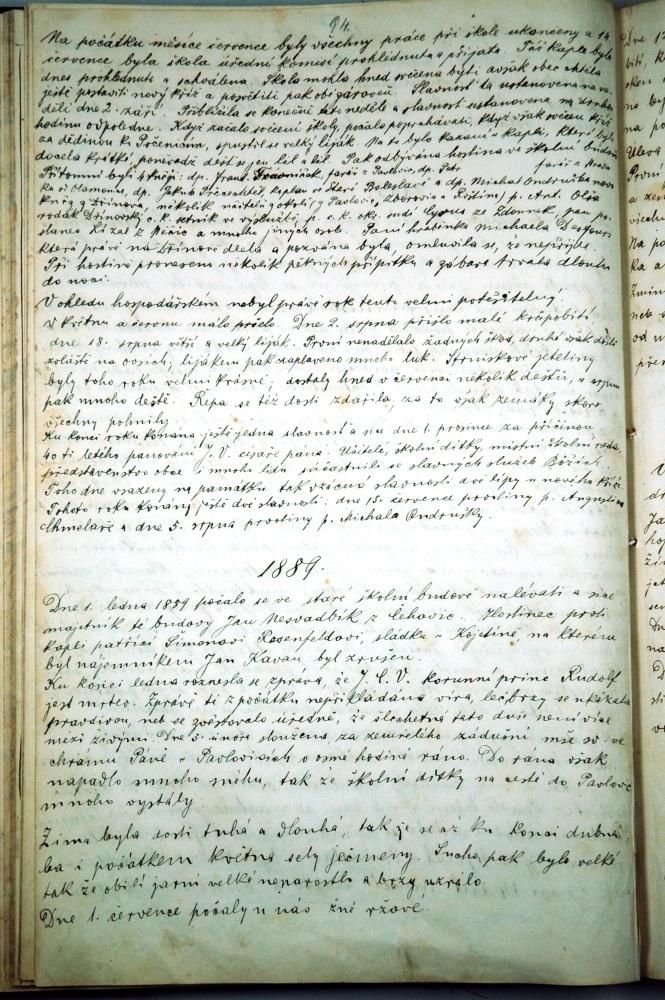 94.
Na počátku měsíce července byly všechny práce při škole ukončeny a 14.
července byla škola úřední komisí prohlédnuta a přijata. Též kaple byla
dnes prohlédnuta a schválena. Škola mohla hned svěcena býti avšak obec chtěla
ještě postaviti nový kříž a posvětiti pak obé zároveň. Slavnost ta ustanovena na ne-
děli dne 2. září. Přiblížila se konečně tato neděle a slavnost ustanovena na druhou
hodinu odpoledne. Když začalo svěcení školy, počalo poprchávati, když však svěcen kříž
za dědinou k Srčenicím, spustil se velký liják. Na to bylo kázaní v kapli, které bylo
docela krátké, poněvadž déšť se jen lil a lil. Pak odbývána hostina ve školní budově
Přítomni byli kněží: dp. Franz. farář z Pavlovic, dp. Petr farář z
ka z Olomouce, dp. Jakub kaplan ve Staré Boleslavě a dp. Michal Ondruška novo-
kněz z Dřínova, několik učitelů z okolí (z Pavlovic, Zborovic a Roštína) p. Ant. Olša
rodák Dřínovský c. k. setník ve výslužbě, p. c. k. okr. sudí ze Zdounek, pan po-
slanec Lízal z Věžic a mnoho jiných osob. Paní hraběnka Michaela Desfours
která právě na Dřínově dlela a pozvána byla, omluvila se, že nepřijde.
Při hostině proneseno několik pěkných přípitků a zábava trvala dlouho
do noci.
V ohledu hospodářském nebyl právě rok tento velmi potěšitelný.
V květnu a červnu málo pršelo. Dne 2. srpna přišlo malé krupobití
dne 18. srpna vítr a velký liják. První nenadělalo žádných škod, druhé však dosti
zvláště na ovsích; lijákem pak zaplaveno mnoho luk. Strniskové jeteliny
byly toho roku velmi krásné; dostaly hned v červenci několik dešťů, v srpnu
pak mnoho deště. Řepa se též dosti zdařila, za to však zemáky skoro
všechny pohnily.
Ku konci roku konána ještě jedna slavnost a sice dne 1. prosince za příčinou
40ti letého panování J. V. císaře pána. Učitelé, školní dítky, místní školní rada,
představenstvo obce i mnoho lidu súčastnili se slavných služeb Božích.
Toho dne vsazeny na památku tak vzácné slavnosti dvě lípy u nového kříže.
Tohoto roku konány ještě dvě slavnosti: dne 15. července prvotiny p. Augustina
Chmelaře a dne 5. srpna prvotiny p. Michala Ondrušky.
1889.
Dne 1. ledna 1889 počalo se ve staré školní budově nalévati a sice
majetník té budovy Jan Nesvadbík z Čehovic. Hostinec proti
kapli patřící Šimonovi Rosenfeldovi, sládku v Kojetíně, na kterém
byl nájemníkem Jan Kavan, byl zrušen.
Ku konci ledna roznesla se zpráva, že J. C. V. korunní princ Rudolf
jest mrtev. Zprávě té z počátku nepřikládána víra, leč brzy se ukázala
pravdivou, neb se zvěstovalo úředně, že šlechetná tato duše není více
mezi živými. Dne 5. února sloužena za zemřelého zádušní mše sv. ve
chrámu Páně v Pavlovicích o osmé hodině ráno. Do rána však
napadlo mnoho sněhu, tak že školní dítky na cestě do Pavlovic
mnoho vystály.
Zima byla dosti tuhá a dlouhá, tak že se až ku konci dubna
ba i počátkem května sely ječmeny. Sucho pak bylo velké
tak že obilí jarní velké neparostlo a brzy uzrálo.
Dne 1. července počaly u nás žně ržové.